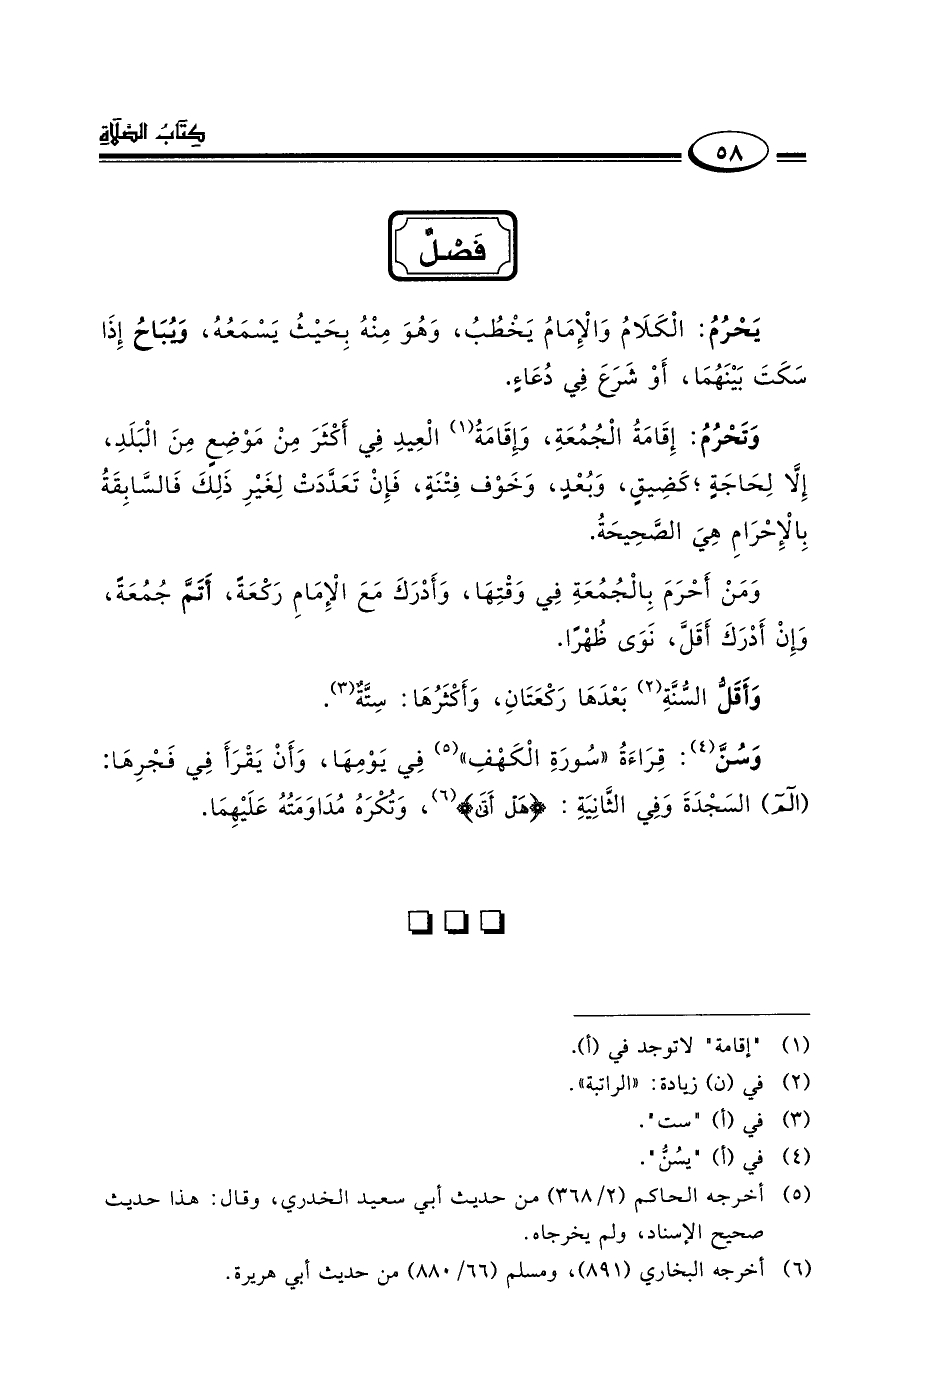 كِتَابُ الصَّلَاةِ
٥٨
فَصْلٌ
يَحْرُمُ: الْكَلَامُ وَالْإِمَامُ يَخْطُبُ، وَهُوَ مِنْهُ بِحَيْثُ يَسْمَعُهُ، وَيُبَاحُ إِذَا
سَكَتَ بَيْنَهُمَا، أَوْ شَرَعَ فِي دُعَاءٍ.
وَتَحْرُمُ: إِقَامَةُ الْجُمُعَةِ، وَإِقَامَةُ(١) الْعِيدِ فِي أَكْثَرَ مِنْ مَوْضِعٍ مِنَ الْبَلَدِ،
إِلَّا لِحَاجَةٍ ؛كَضِيقٍ، وَبُعْدٍ، وَخَوْف فِتْنَةٍ، فَإِنْ تَعَدَّدَتْ لِغَيْرِ ذَلِكَ فَالسَّابِقَةُ
بِالْإِحْرَامِ هِيَ الصَّحِيحَةُ.
وَمَنْ أَحْرَمَ بِالْجُمُعَةِ فِي وَقْتِهَا، وَأَدْرَكَ مَعَ الْإِمَامِ رَكْعَةً، أَتَمَّ جُمُعَةً،
وَإِنْ أَدْرَكَ أَقَلَّ، نَوَى ظُهْرًا.
وَأَقَلُّ السُّنَّةِ(٢) بَعْدَهَا رَكْعَتَانِ، وَأَكْثَرُهَا: سِتَّةٌ(٣).
وَسُنَّ(٤): قِرَاءَةُ «سُورَةِ الْكَهْفِ»(٥) فِي يَوْمِهَا، وَأَنْ يَقْرَأَ فِي فَجْرِهَا:
(الٓمٓ) السَجْدَةَ وَفِي الثَّانِيَةِ : ﴿هَلْ أَتَى﴾(٦)، وَتُكْرَهُ مُدَاوَمَتُهُ عَلَيْهِمَا.
(١) "إقامة" لاتوجد في (أ).
(٢) في (ن) زيادة: «الراتبة».
(٣) في (أ) "ست".
(٤) في (أ) "يسُنُّ".
(٥) أخرجه الحاكم (٣٦٨/٢) من حديث أبي سعيد الخدري، وقال: هذا حديث
صحيح الإسناد، ولم يخرجاه.
(٦) أخرجه البخاري (٨٩١)، ومسلم (٨٨٠/٦٦) من حديث أبي هريرة.